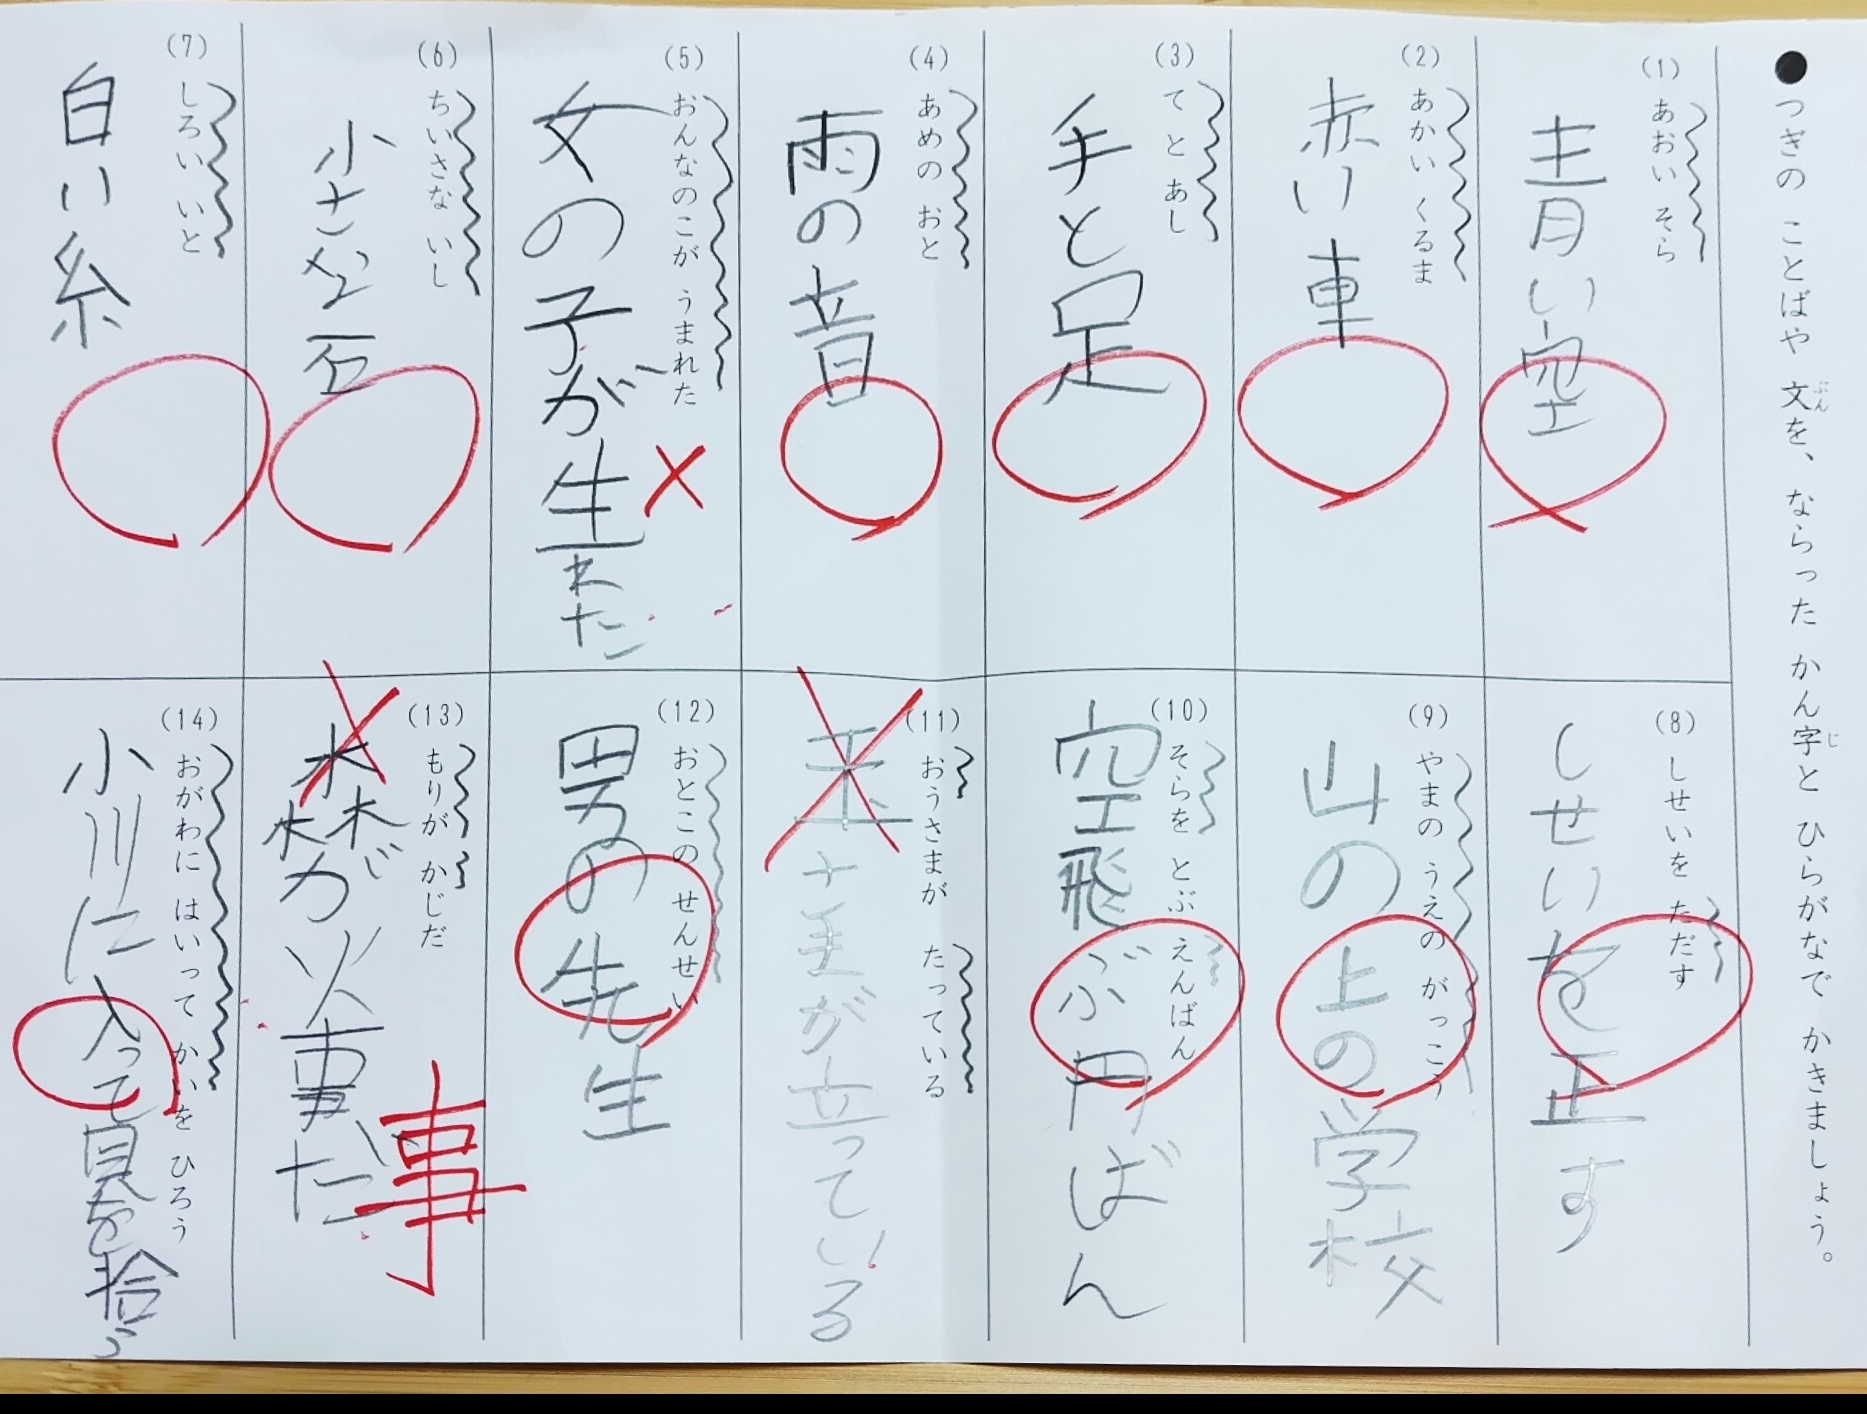 ●つぎの ことばや 文を、ならった かん字と ひらがなで かきましょう。
ぶん
じ
(1) あおい そら
青い空
(2) あかい くるま
赤い車
(3) て と あし
手と足
(4) あめの おと
雨の音
(5) おんなのこが うまれた
女の子が生れた
(6) ちいさな いし
小さな石
(7) しろい いと
白い糸
(8) しせいを ただす
しせいを正す
(9) やまの うえの がっこう
山の上の学校
(10) そらを とぶ えんばん
空飛ぶ円ばん
(11) おうさまが たっている
玉さまが立っている
(12) おとこの せんせい
男の先生
(13) もりが かじだ
森が火事だ
事
(14) おがわに はいって かいを ひろう
小川に入って貝を拾う